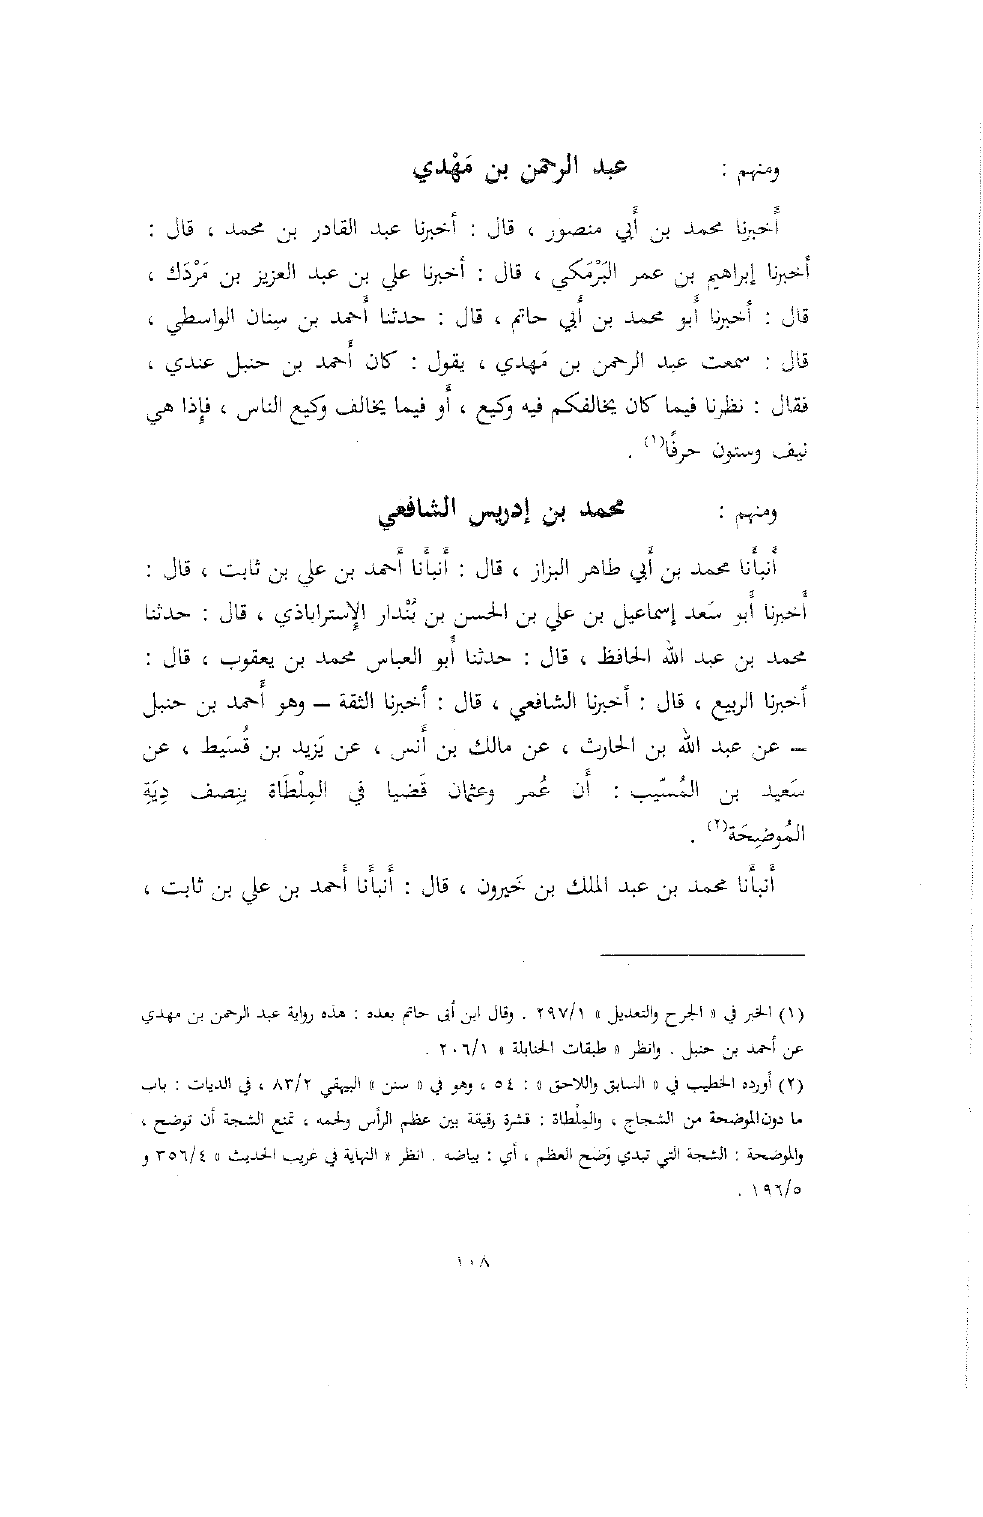 ومنهم : عبد الرحمن بن مَهْدي
أخبرنا محمد بن أبي منصور ، قال : أخبرنا عبد القادر بن محمد ، قال :
أخبرنا إبراهيم بن عمر البَرْمَكي ، قال : أخبرنا علي بن عبد العزيز بن مَرْدَك ،
قال : أخبرنا أبو محمد بن أبي حاتم ، قال : حدثنا أحمد بن سِنان الواسطي ،
قال : سمعت عبد الرحمن بن مَهدي ، يقول : كان أحمد بن حنبل عندي ،
فقال : نظرنا فيما كان يخالفكم فيه وكيع ، أو فيما يخالف وكيع الناس ، فإذا هي
نيف وستون حرفًا(١) .
ومنهم : محمد بن إدريس الشافعي
أنبأنا محمد بن أبي طاهر البزاز ، قال : أنبأنا أحمد بن علي بن ثابت ، قال :
أخبرنا أبو سَعد إسماعيل بن علي بن الحسن بن بُنْدار الإستراباذي ، قال : حدثنا
محمد بن عبد الله الحافظ ، قال : حدثنا أبو العباس محمد بن يعقوب ، قال :
أخبرنا الربيع ، قال : أخبرنا الشافعي ، قال : أخبرنا الثقة – وهو أحمد بن حنبل
– عن عبد الله بن الحارث ، عن مالك بن أنس ، عن يَزيد بن قُسَيط ، عن
سَعيد بن المُسّيب : أن عُمر وعثمان قَضيا في المِلْطَاة بِنِصف دِيَةِ
المُوضِحَة(٢) .
أنبأنا محمد بن عبد الملك بن خَيرون ، قال : أنبأنا أحمد بن علي بن ثابت ،
(١) الخبر في « الجرح والتعديل » ٢٩٧/١ . وقال ابن أبى حاتم بعده : هذه رواية عبد الرحمن بن مهدي
عن أحمد بن حنبل . وانظر « طبقات الحنابلة » ٢٠٦/١ .
(٢) أورده الخطيب في « السابق واللاحق » : ٥٤ ، وهو في « سنن » البيهقي ٨٣/٢ ، في الديات : باب
ما دون الموضحة من الشجاج ، والمِلْطاة : قشرة رقيقة بين عظم الرأس ولحمه ، تمنع الشجة أن توضح ،
والموضحة : الشجة التي تبدي وَضح العظم ، أي : بياضه . انظر « النهاية في غريب الحديث » ٣٥٦/٤ و
١٩٦/٥ .
١٠٨